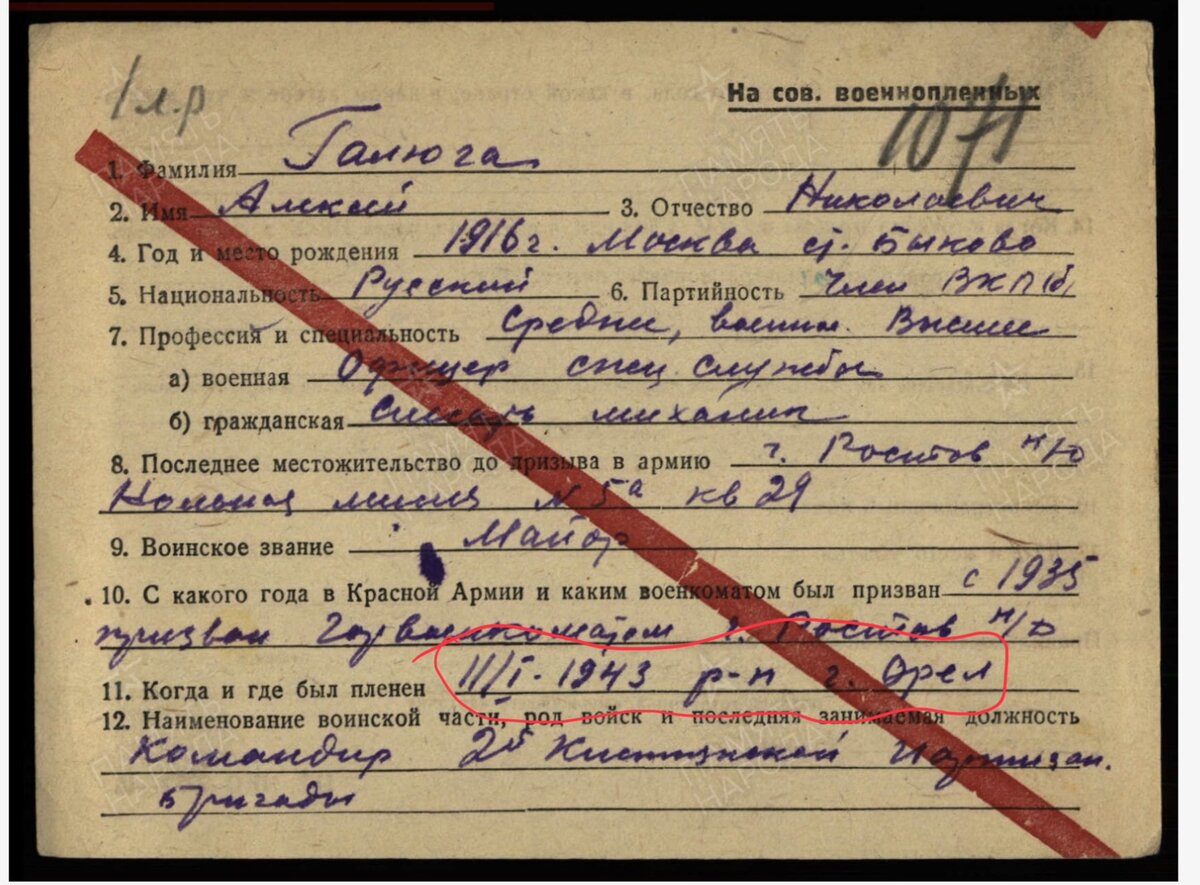 1 л.р
На сов. военнопленных
1071
1. Фамилия Галюга
2. Имя Алексей 3. Отчество Николаевич
4. Год и место рождения 1916 г. Москва ст. Быково
5. Национальность Русский 6. Партийность Член ВКП(б)
7. Профессия и специальность Средни, военн. Высшее
а) военная Офицер спец. службы
б) гражданская Слесарь механик
8. Последнее местожительство до призыва в армию г. Ростов н/Д
линия N 5а кв 29
9. Воинское звание Майор
10. С какого года в Красной Армии и каким военкоматом был призван с 1935
призван Горвоенкоматом г. Ростов н/Д
11. Когда и где был пленен 11/I-1943 р-н г. Орел
12. Наименование воинской части, род войск и последняя занимаемая должность
Командир 2й Партизан.
бригады
ПАМЯТЬ НАРОДА